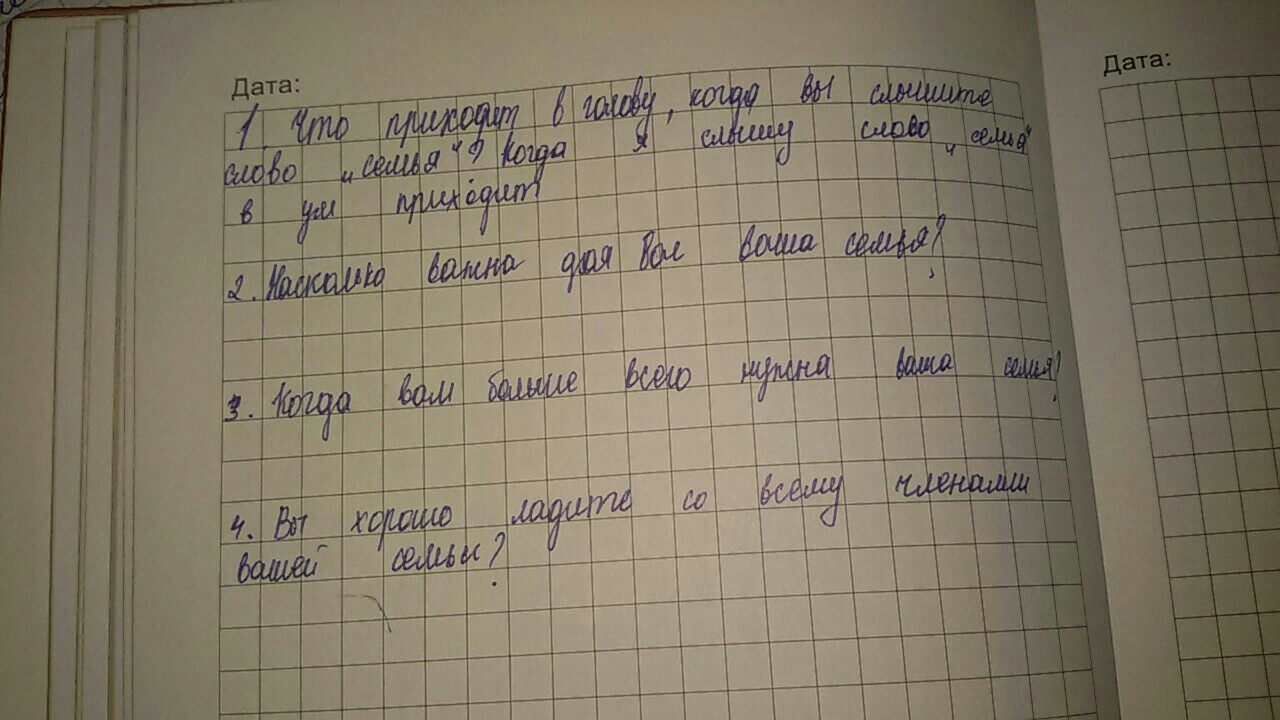 Дата:
Дата:
1. Что приходит в голову, когда вы слышите
слово „семья"? Когда я слышу слово „семья"
в ум приходит
2. Насколько важна для Вас ваша семья?
3. Когда вам больше всего нужна ваша семья?
4. Вы хорошо ладите со всему членами
вашей семьи?